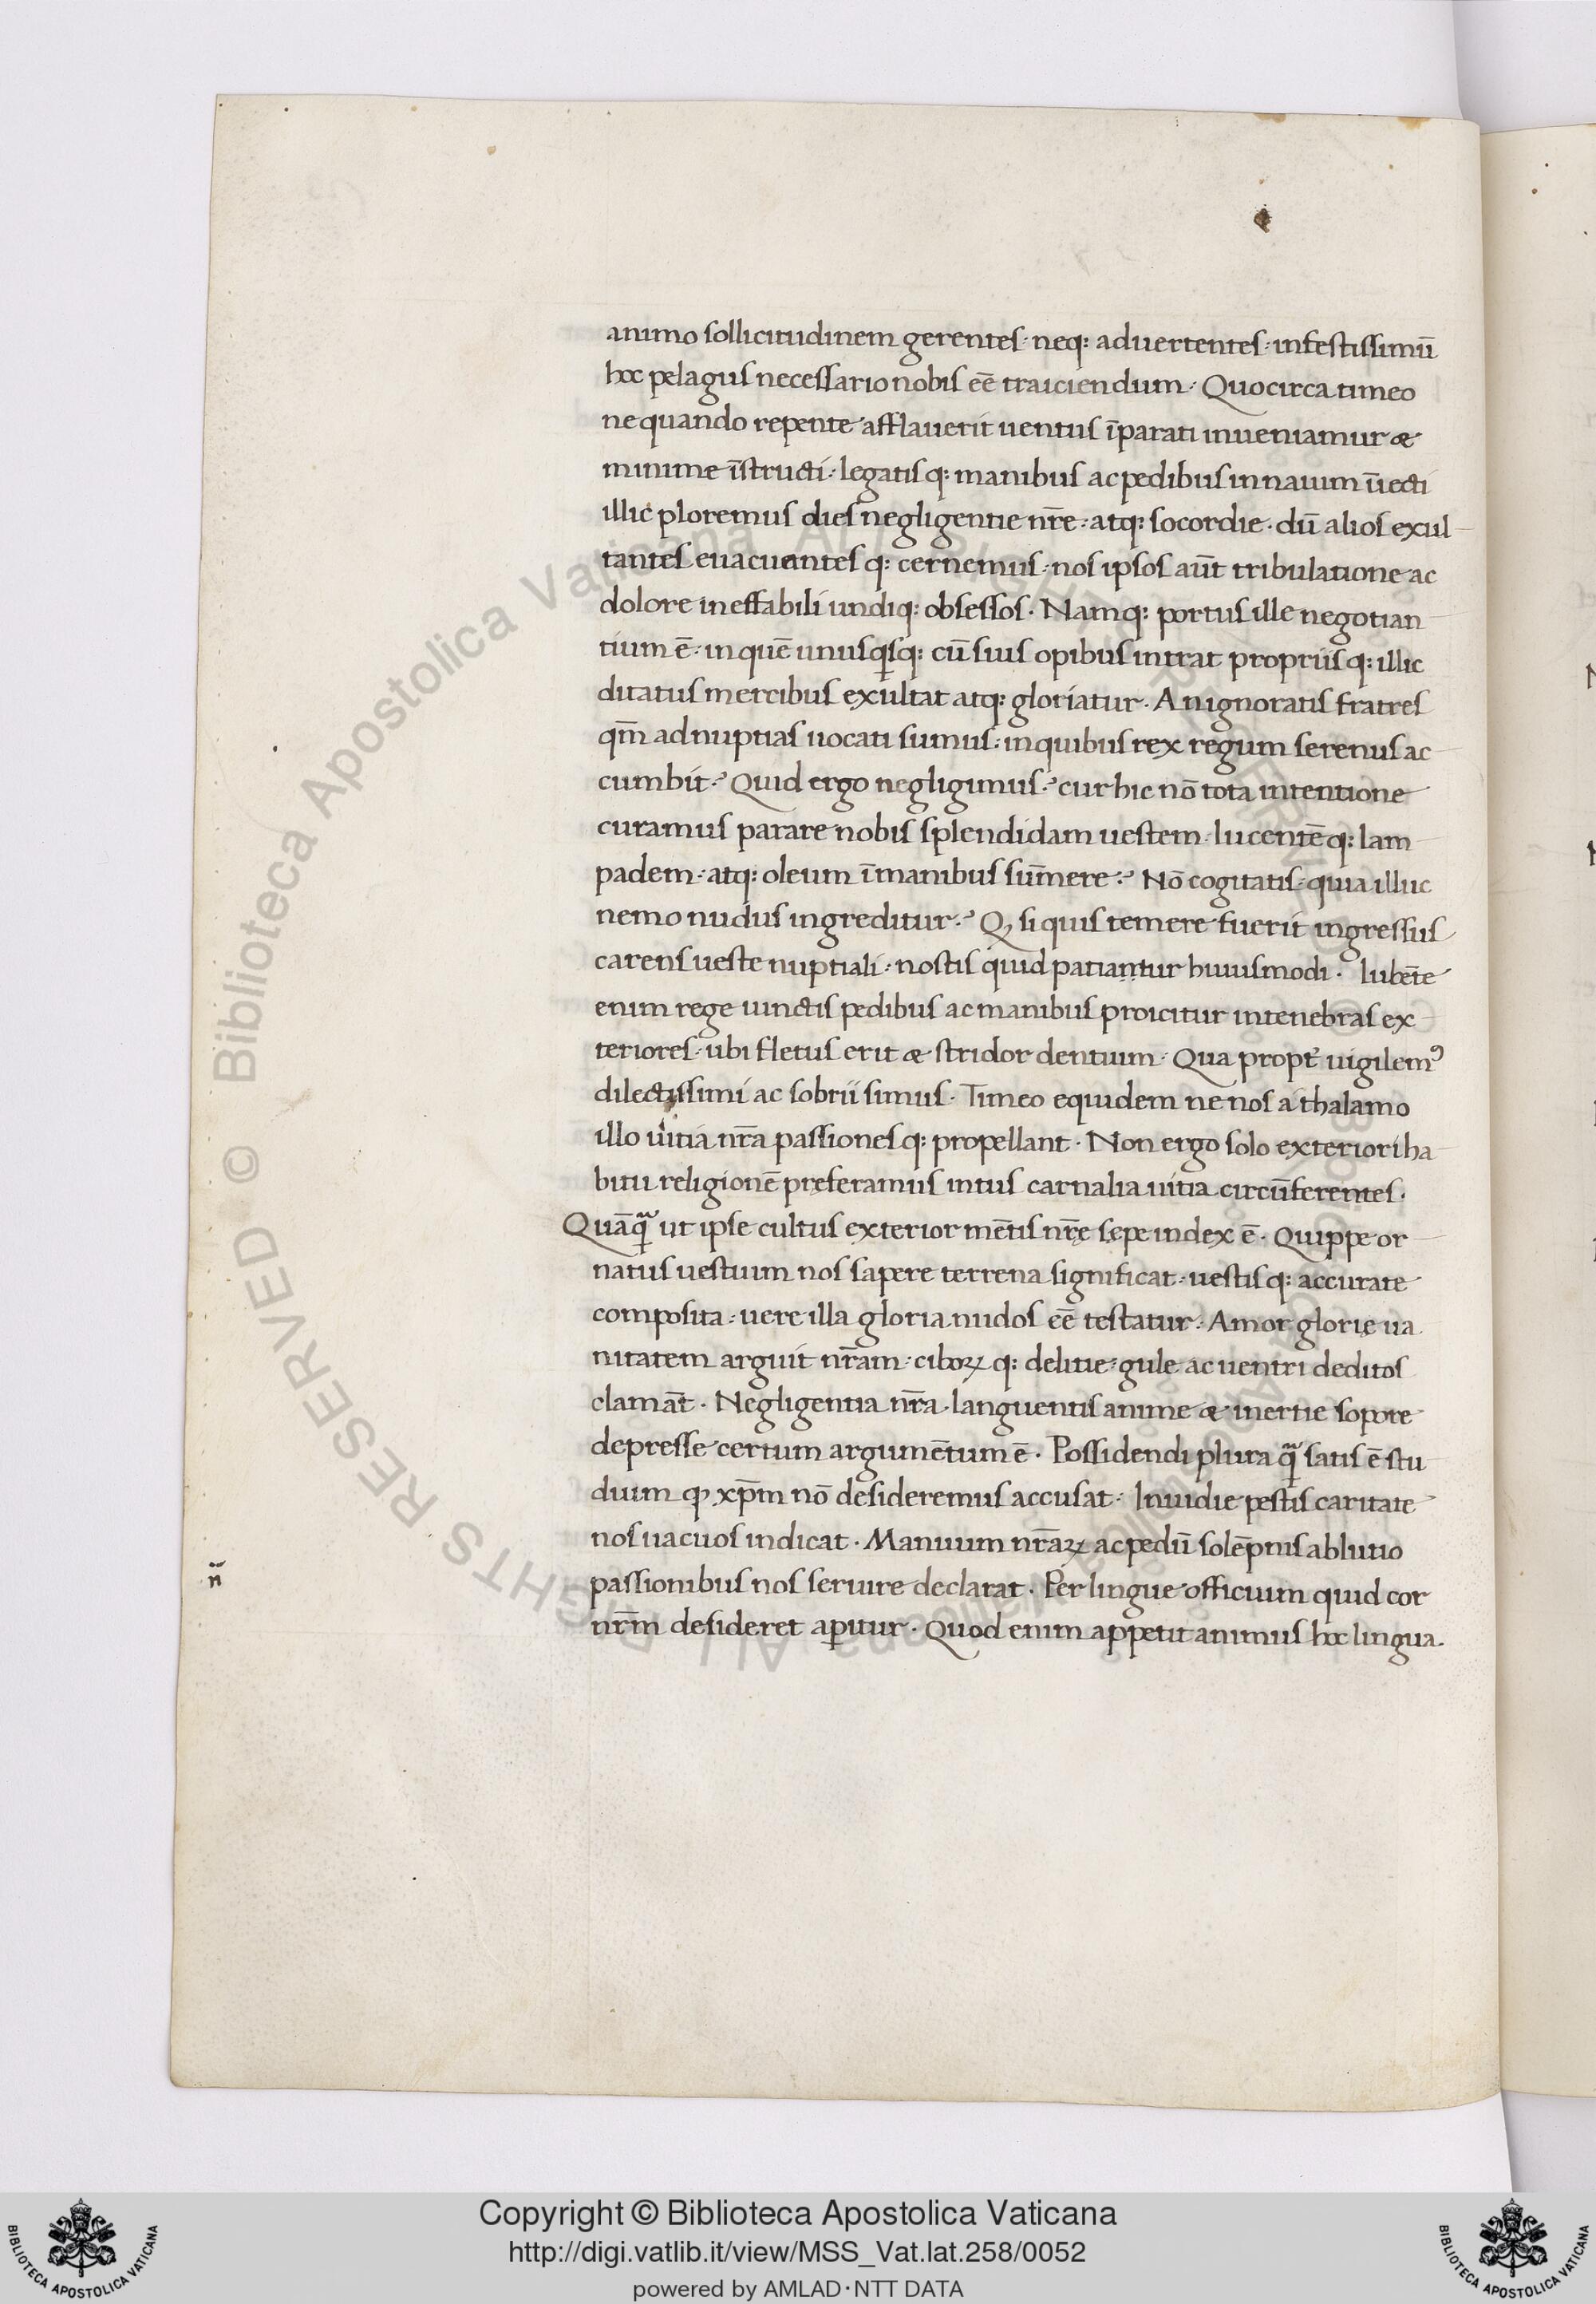 animo sollicitudinem gerentes· neq: aduertentes· infestissimū
hoc pelagus necessario nobis eē traiciendum· Quocirca timeo
ne quando repente afflauerit uentus īparati inueniamur &
minime īstructi· legatisq: manibus ac pedibus in nauim ūecti
illic ploremus dies negligentie nr̄e· atq: socordie· dū alios exul
tantes euacuantesq: cernemus· nos ipsos aūt tribulatione ac
dolore ineffabili undiq: obsessos· Namq: portus ille negotian
tium ē· in quē unusqisq: cū suis opibus intrat propriisq: illic
ditatus mercibus exultat atq: gloriatur· An ignoratis fratres
qm̄ ad nuptias uocati sumus· in quibus rex regum serenus ac
cumbit? Quid ergo negligimus? cur hic nō tota intentione
curamus parare nobis splendidam uestem· lucentēq: lam
padem· atq: oleum ī manibus sum̄ere? Nō cogitatis· quia illuc
nemo nudus ingreditur? Q, si quis temere fuerit ingressus
carens ueste nuptiali· nostis quid patiantur huiusmodi· Iubēte
enim rege uinctis pedibus ac manibus proicitur in tenebras ex
teriores· ubi fletus erit & stridor dentium· Qua propt̄ uigilemꝰ
dilectissimi ac sobrii simus· Timeo equidem ne nos a thalamo
illo uitia nr̄a passionesq: propellant· Non ergo solo exteriori ha
bitu religionē pręferamus intus carnalia uitia circūferentes·
Quāqꝫ ut ipse cultus exterior mētis nr̄ę sępe index ē· Quippe or
natus uestium nos sapere terrena significat· uestisq: accurate
composita· uere illa gloria nudos eē testatur· Amor glorię ua
nitatem arguit nr̄am· ciboꝝq: delitie· gule ac uentri deditos
clamāt· Negligentia nr̄a· languentis anime & inertie sopore
depresse certum argumētum ē· Possidendi plura qꝫ satis ē stu
dium ꝙ xp̄m nō desideremus accusat· Inuidie pestis caritate
nos uacuos indicat· Manuum nr̄aꝝ ac pedū solēpnis ablutio
passionibus nos seruire declarat· Per lingue officium quid cor
nr̄m desideret aꝑitur· Quod enim appetit animus hoc lingua·
n̄
Copyright © Biblioteca Apostolica Vaticana
http://digi.vatlib.it/view/MSS_Vat.lat.258/0052
powered by AMLAD·NTT DATA
BIBLIOTECA APOSTOLICA VATICANA
BIBLIOTECA APOSTOLICA VATICANA
© Biblioteca Apostolica Vaticana ALL RIGHTS RESERVED © Biblioteca Apostolica Vaticana ALL RIGHTS RESERVED